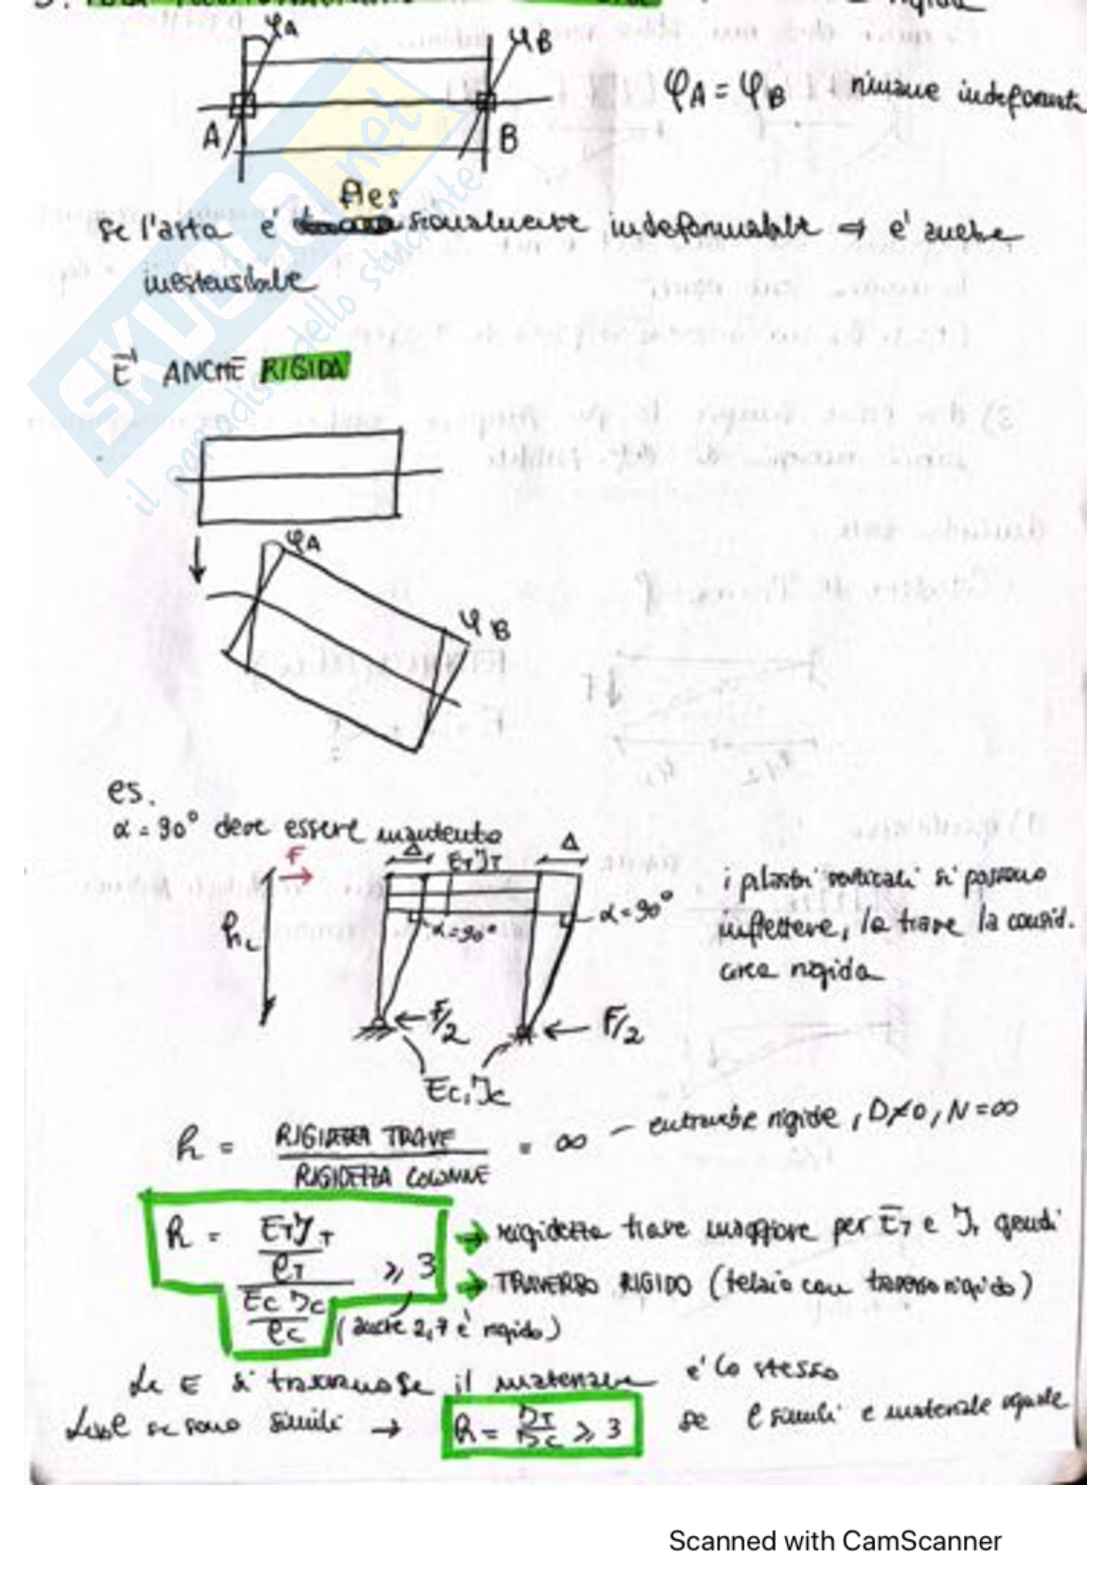 φA
φB
φA = φB rimane indeformata
A
B
fles
se l'asta e' sionalmente indeformabile ⇒ e' anche
inestensibile
E' ANCHE RIGIDA
φA
φB
es.
α = 90° deve essere mantenuto
F
Δ
ET JT
Δ
hc
α = 90°
α = 90°
i pilastri verticali si possono
inflettere, la trave la consid.
rigida
F/2
F/2
Ec, Jc
R = RIGIDEZZA TRAVE / RIGIDEZZA COLONNE = ∞ – entrambe rigide, D≠0, N=∞
R = (ET JT / lT) / (Ec Jc / lc) ≥ 3
→ rigidezza trave maggiore per ET e JT grandi
→ TRAVERSO RIGIDO (telaio con traverso rigido)
(anche 2,7 è rigido)
Le E si trascurano se il materiale e' lo stesso
se sono simili → R = JT / Jc ≥ 3 se l simili e materiale uguale
SKUOLA.net
il paradiso dello studente
Scanned with CamScanner